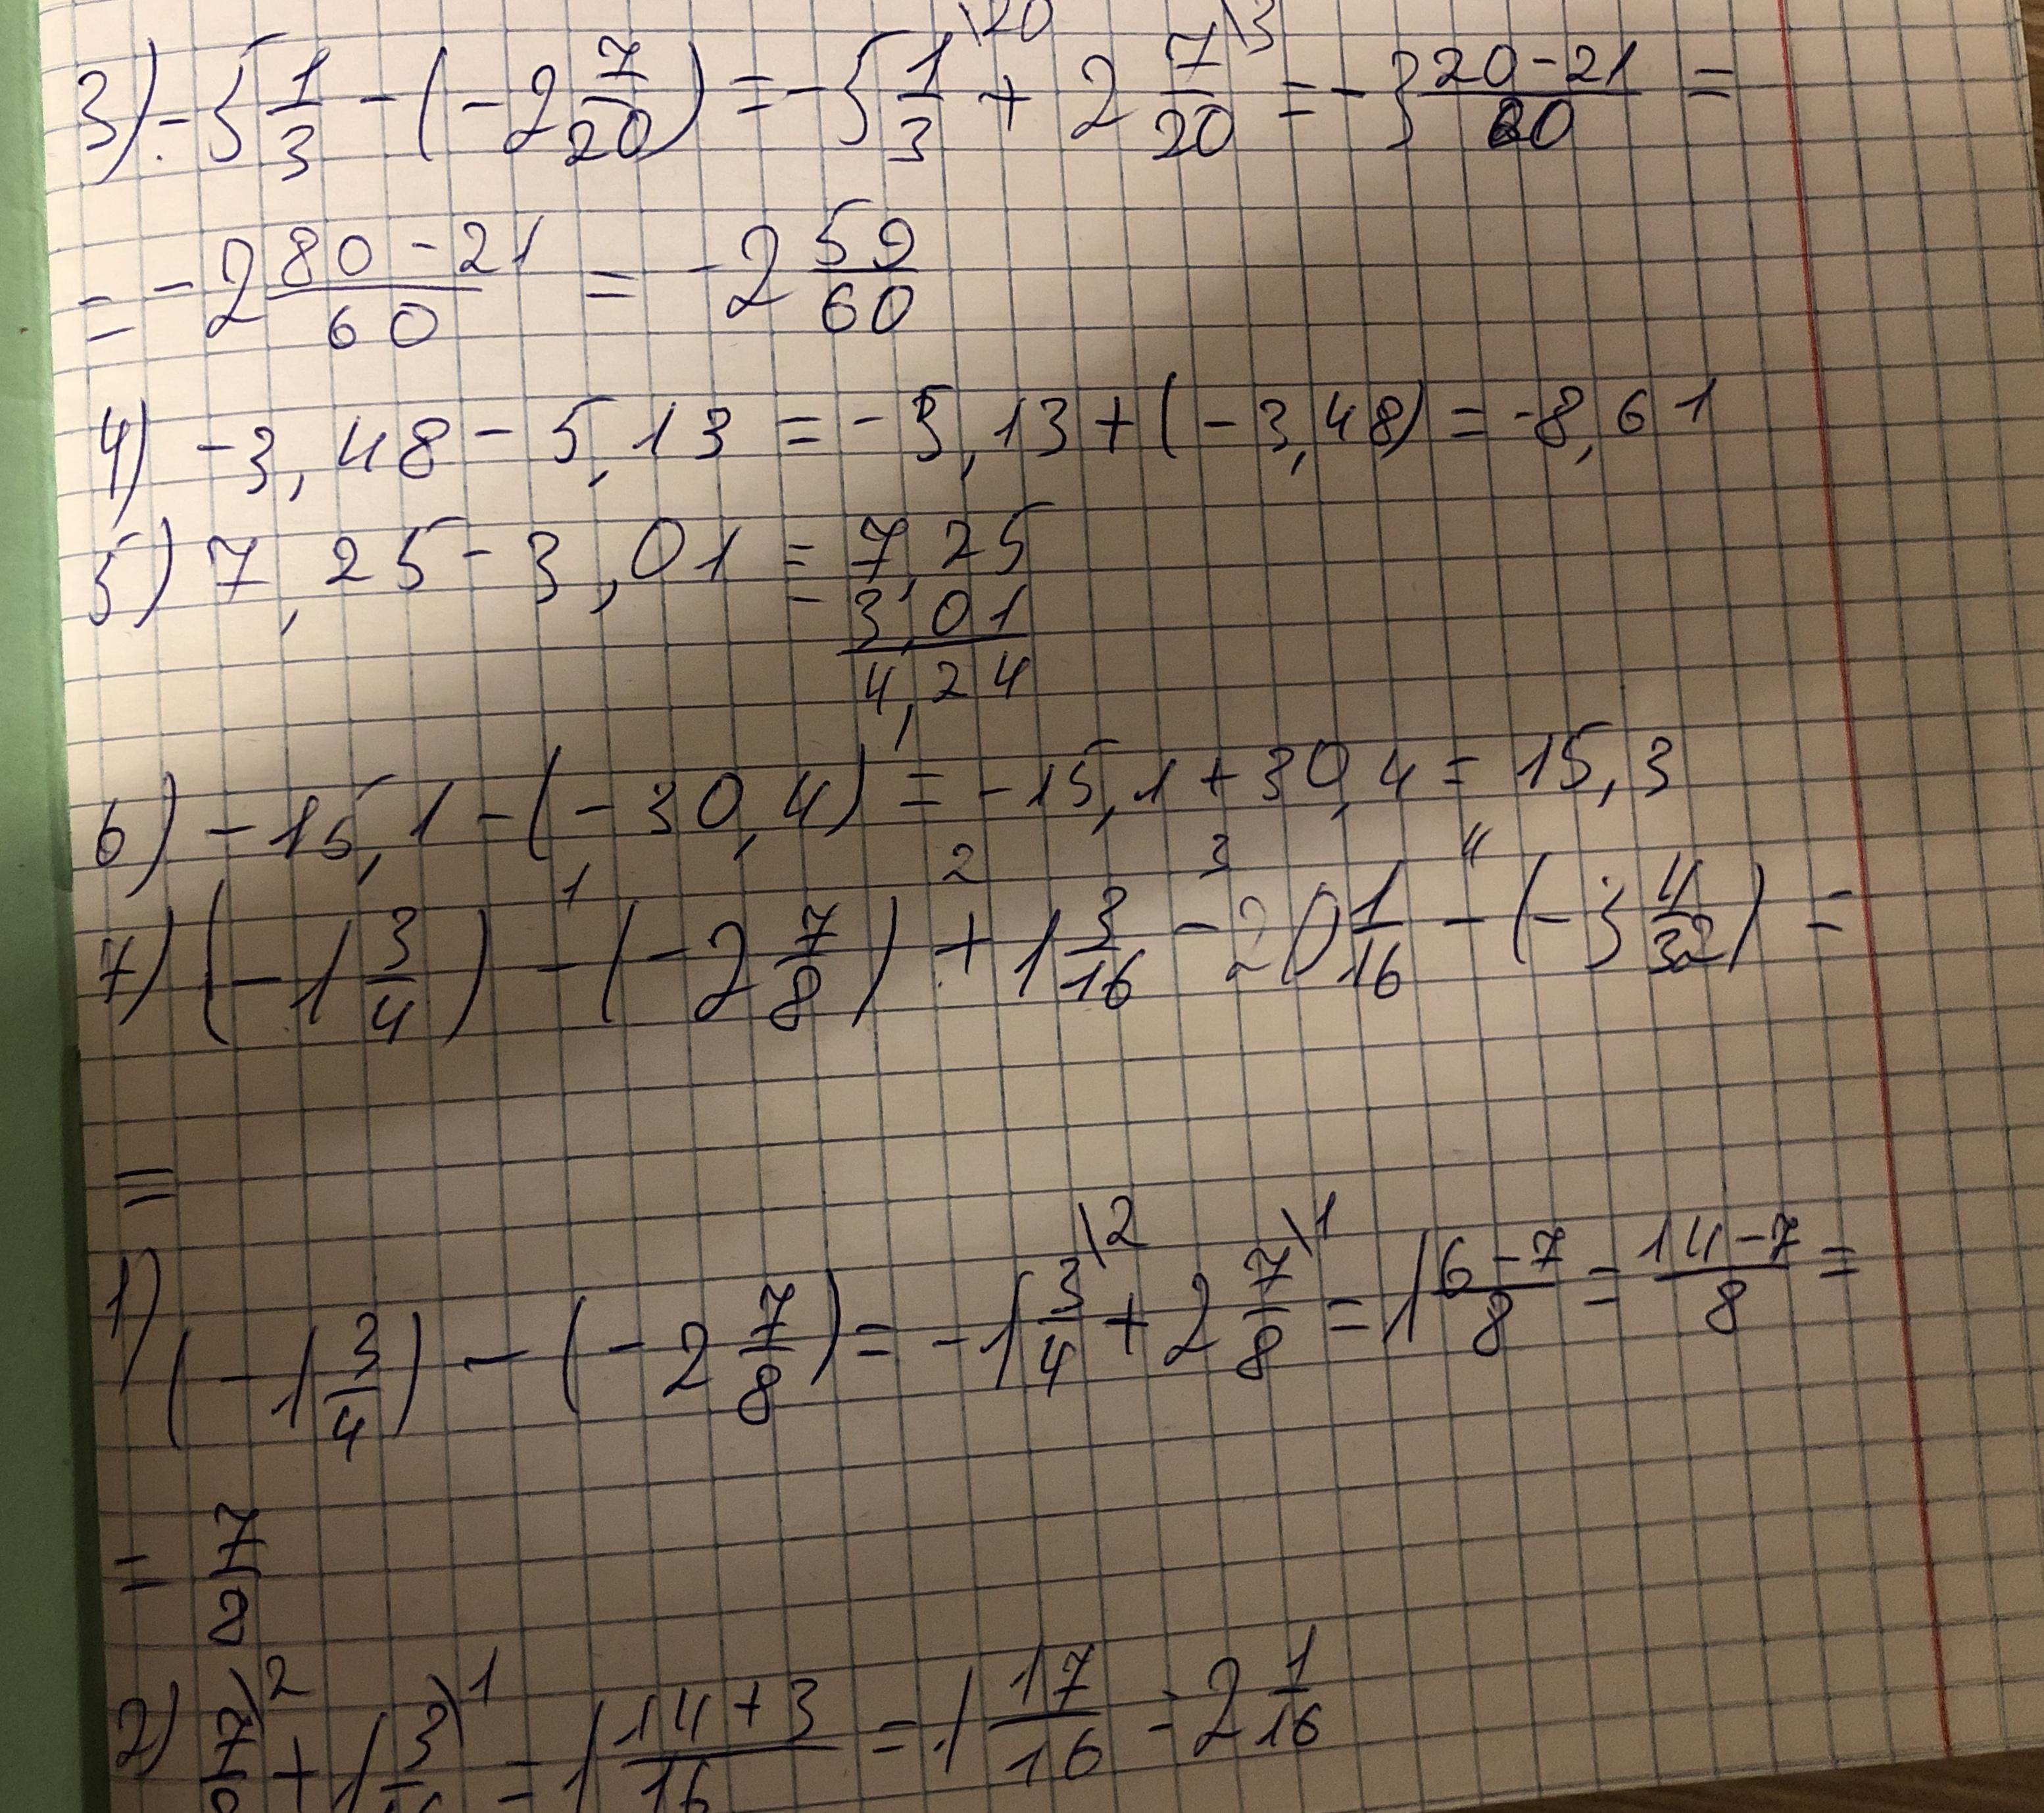 3) -5 1/3 - (-2 7/20) = -5 1/3 \20 + 2 7/20 \3 = -3 20-21/60 =
= -2 80-21/60 = -2 59/60
4) -3,48 - 5,13 = -5,13 + (-3,48) = -8,61
5) 7,25 - 3,01 = 7,25
- 3,01
4,24
6) -15,1 - (-30,4) = -15,1 + 30,4 = 15,3
1 2 3 4
7) (-1 3/4) - (-2 7/8) + 1 3/16 - 20 1/16 - (-3 4/32) =
=
1) (-1 3/4) - (-2 7/8) = -1 3/4 \2 + 2 7/8 \1 = 1 6-7/8 = 14-7/8 =
= 7/8
2) 7/8 \2 + 1 3/16 \1 = 1 14+3/16 = 1 17/16 = 2 1/16